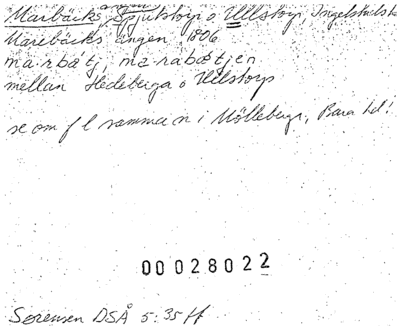 Marbäcks ängen Spjutstorp o Ullstorp, Ingelstads h
Marebäcks ängen 1806
marbátj, marabátjen
mellan Hedeberga o Ullstorp
se om fl samma n i Mölleberga, Bara hd!
00028022
Sørensen DSÅ 5:35 ff